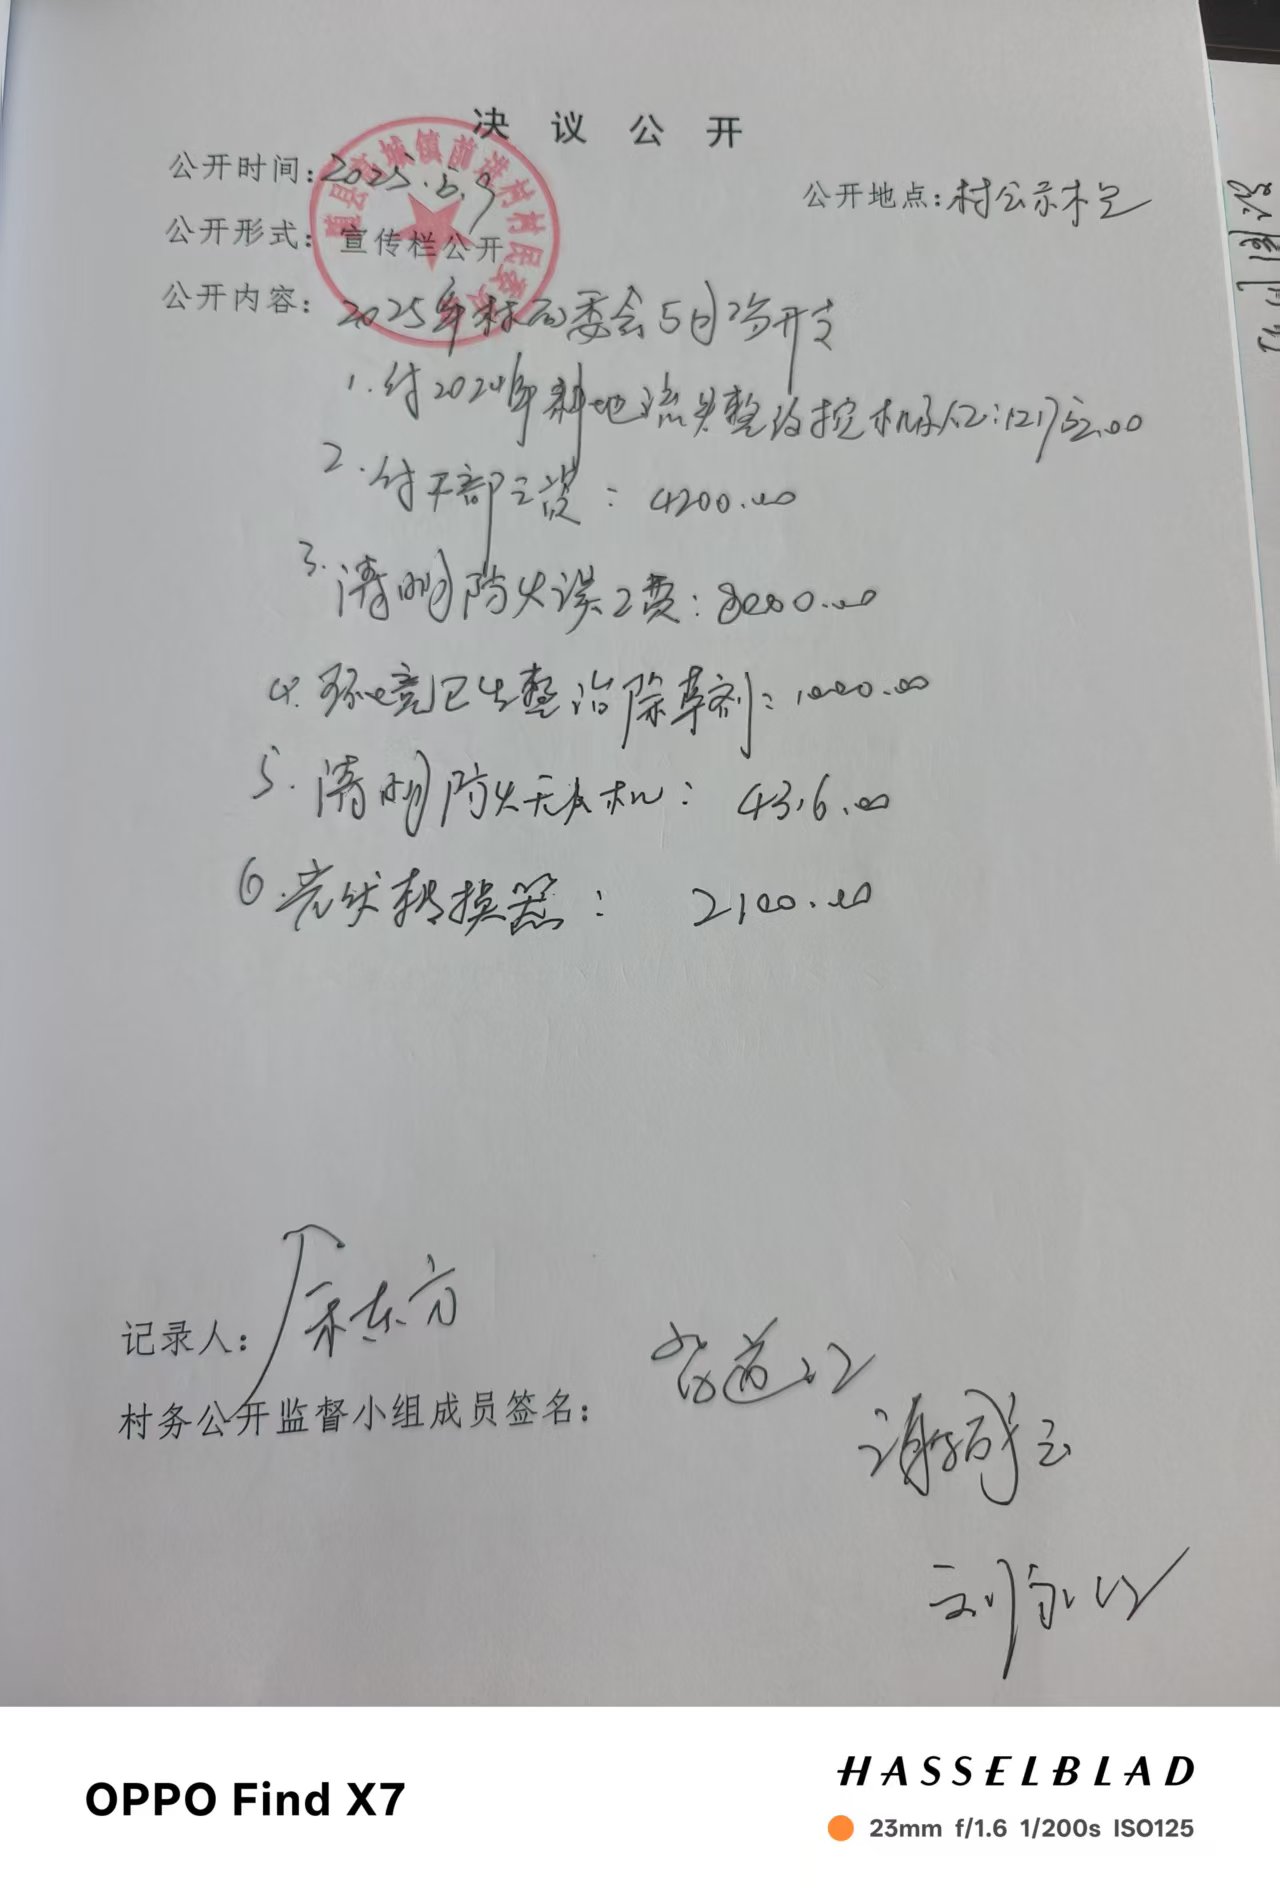 决议公开
公开时间:2025.5.9
公开地点:村公示栏
公开形式:宣传栏公开
公开内容:2025年村两委会5月份开支
1.付2024年耕地流失整改挖机
2.付干部工资:4200.00
3.清明防火误工费:8000.00
4.环境卫生整治除草剂:1000.00
5.清明防火无人机:4316.00
6.光伏转换器:2100.00
记录人:东方
村务公开监督小组成员签名:
刘
OPPO Find X7
HASSELBLAD
23mm f/1.6 1/200s ISO125